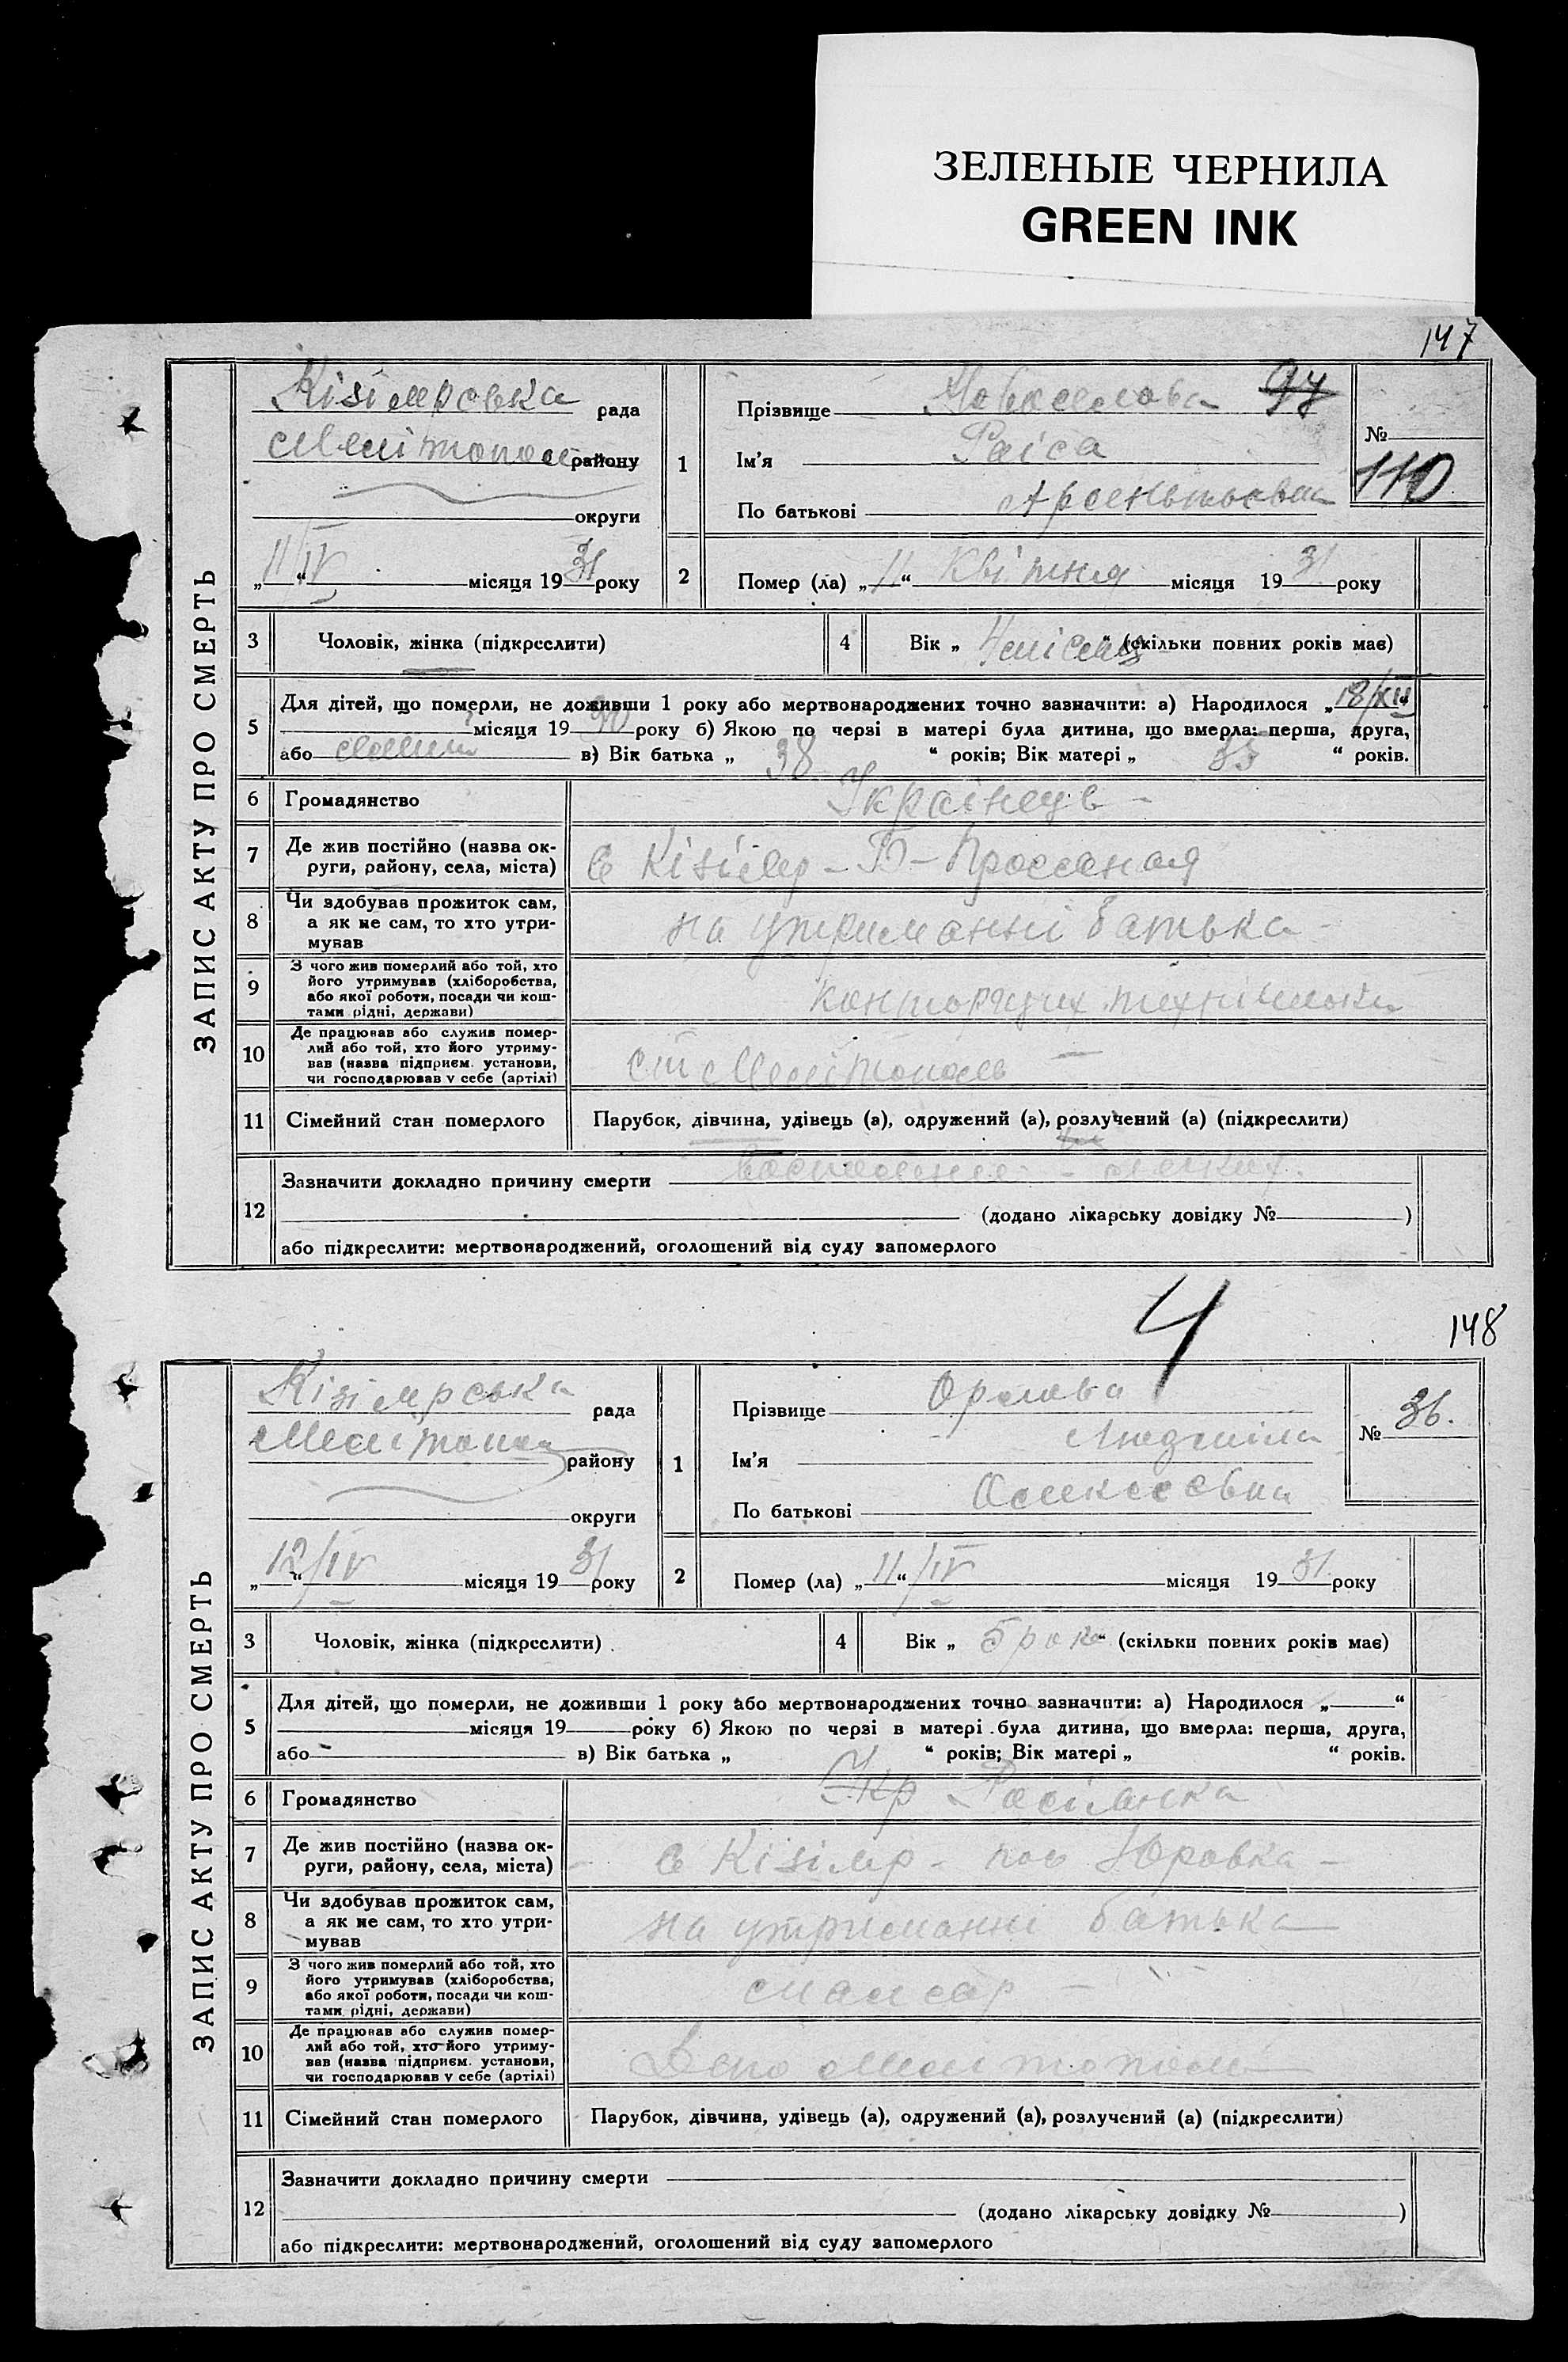 ЗЕЛЕНЫЕ ЧЕРНИЛА
GREEN INK
147
ЗАПИС АКТУ ПРО СМЕРТЬ
Кізіярська рада
Мелітополь району
округи
„11“ IV місяця 1931 року
1
Прізвище Новоселова 97
Ім'я Раіса
По батькові Арсентьевна
№
110
2
Помер (ла) „11“ Квітня місяця 1931 року
3
Чоловік, жінка (підкреслити)
4
Вік „4 місяця“ (скільки повних років має)
5
Для дітей, що померли, не доживши 1 року або мертвонароджених точно зазначити: а) Народилося „18/XII
місяця 1930 року б) Якою по черзі в матері була дитина, що вмерла: перша, друга,
або в) Вік батька „38“ років; Вік матері „35“ років.
6
Громадянство
Українець -
7
Де жив постійно (назва ок-
руги, району, села, міста)
с Кізіяр -
8
Чи здобував прожиток сам,
а як не сам, то хто утри-
мував
на утриманні батька -
9
З чого жив померлий або той, хто
його утримував (хліборобства,
або якої роботи, посади чи кош-
тами рідні, держави)
10
Де працював або служив помер-
лий або той, хто його утриму-
вав (назва підприєм. установи,
чи господарював у себе (артілі)
ст Мелітополь
11
Сімейний стан померлого
Парубок, дівчина, удівець (а), одружений (а), розлучений (а) (підкреслити)
12
Зазначити докладно причину смерти воспаление легких.
(додано лікарську довідку № )
або підкреслити: мертвонароджений, оголошений від суду запомерлого
4
148
ЗАПИС АКТУ ПРО СМЕРТЬ
Кізіярська рада
Мелітопол району
округи
„12“/IV місяця 1931 року
1
Прізвище Орлова
Ім'я Людміла
По батькові Олексеевна
№ 36.
2
Помер (ла) „11“/IV місяця 1931 року
3
Чоловік, жінка (підкреслити)
4
Вік „5 рок“ (скільки повних років має)
5
Для дітей, що померли, не доживши 1 року або мертвонароджених точно зазначити: а) Народилося „ “
місяця 19 року б) Якою по черзі в матері була дитина, що вмерла: перша, друга,
або в) Вік батька „ “ років; Вік матері „ “ років.
6
Громадянство
Укр Росіянка
7
Де жив постійно (назва ок-
руги, району, села, міста)
с Кізіяр - пос Юровка -
8
Чи здобував прожиток сам,
а як не сам, то хто утри-
мував
на утриманні батька
9
З чого жив померлий або той, хто
його утримував (хліборобства,
або якої роботи, посади чи кош-
тами рідні, держави)
слюсар -
10
Де працював або служив помер-
лий або той, хто його утриму-
вав (назва підприєм. установи,
чи господарював у себе (артілі)
Депо Мелітополь
11
Сімейний стан померлого
Парубок, дівчина, удівець (а), одружений (а), розлучений (а) (підкреслити)
12
Зазначити докладно причину смерти
(додано лікарську довідку № )
або підкреслити: мертвонароджений, оголошений від суду запомерлого